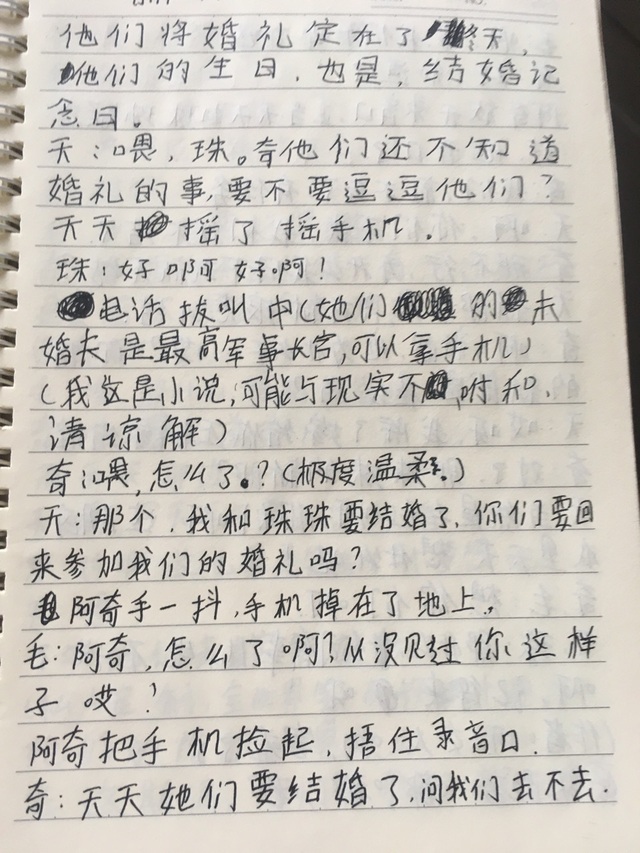 他们将婚礼定在了 终天,
他们的生日,也是,结婚记
念日。
天:喂,珠。奇他们还不知道
婚礼的事,要不要逗逗他们?
天天 摇了摇手机。
珠:好啊好啊!
电话拔叫中(她们 的 未
婚夫是最高军事长官,可以拿手机)
(我这是小说,可能与现实不 咐和,
请谅解)
奇:喂,怎么了。?(极度温柔。)
天:那个,我和珠珠要结婚了,你们要回
来参加我们的婚礼吗?
阿奇手一抖,手机掉在了地上。
毛:阿奇,怎么了啊?从没见过你这样
子哎?
阿奇把手机捡起,捂住录音口.
奇:天天她们要结婚了,问我们去不去.